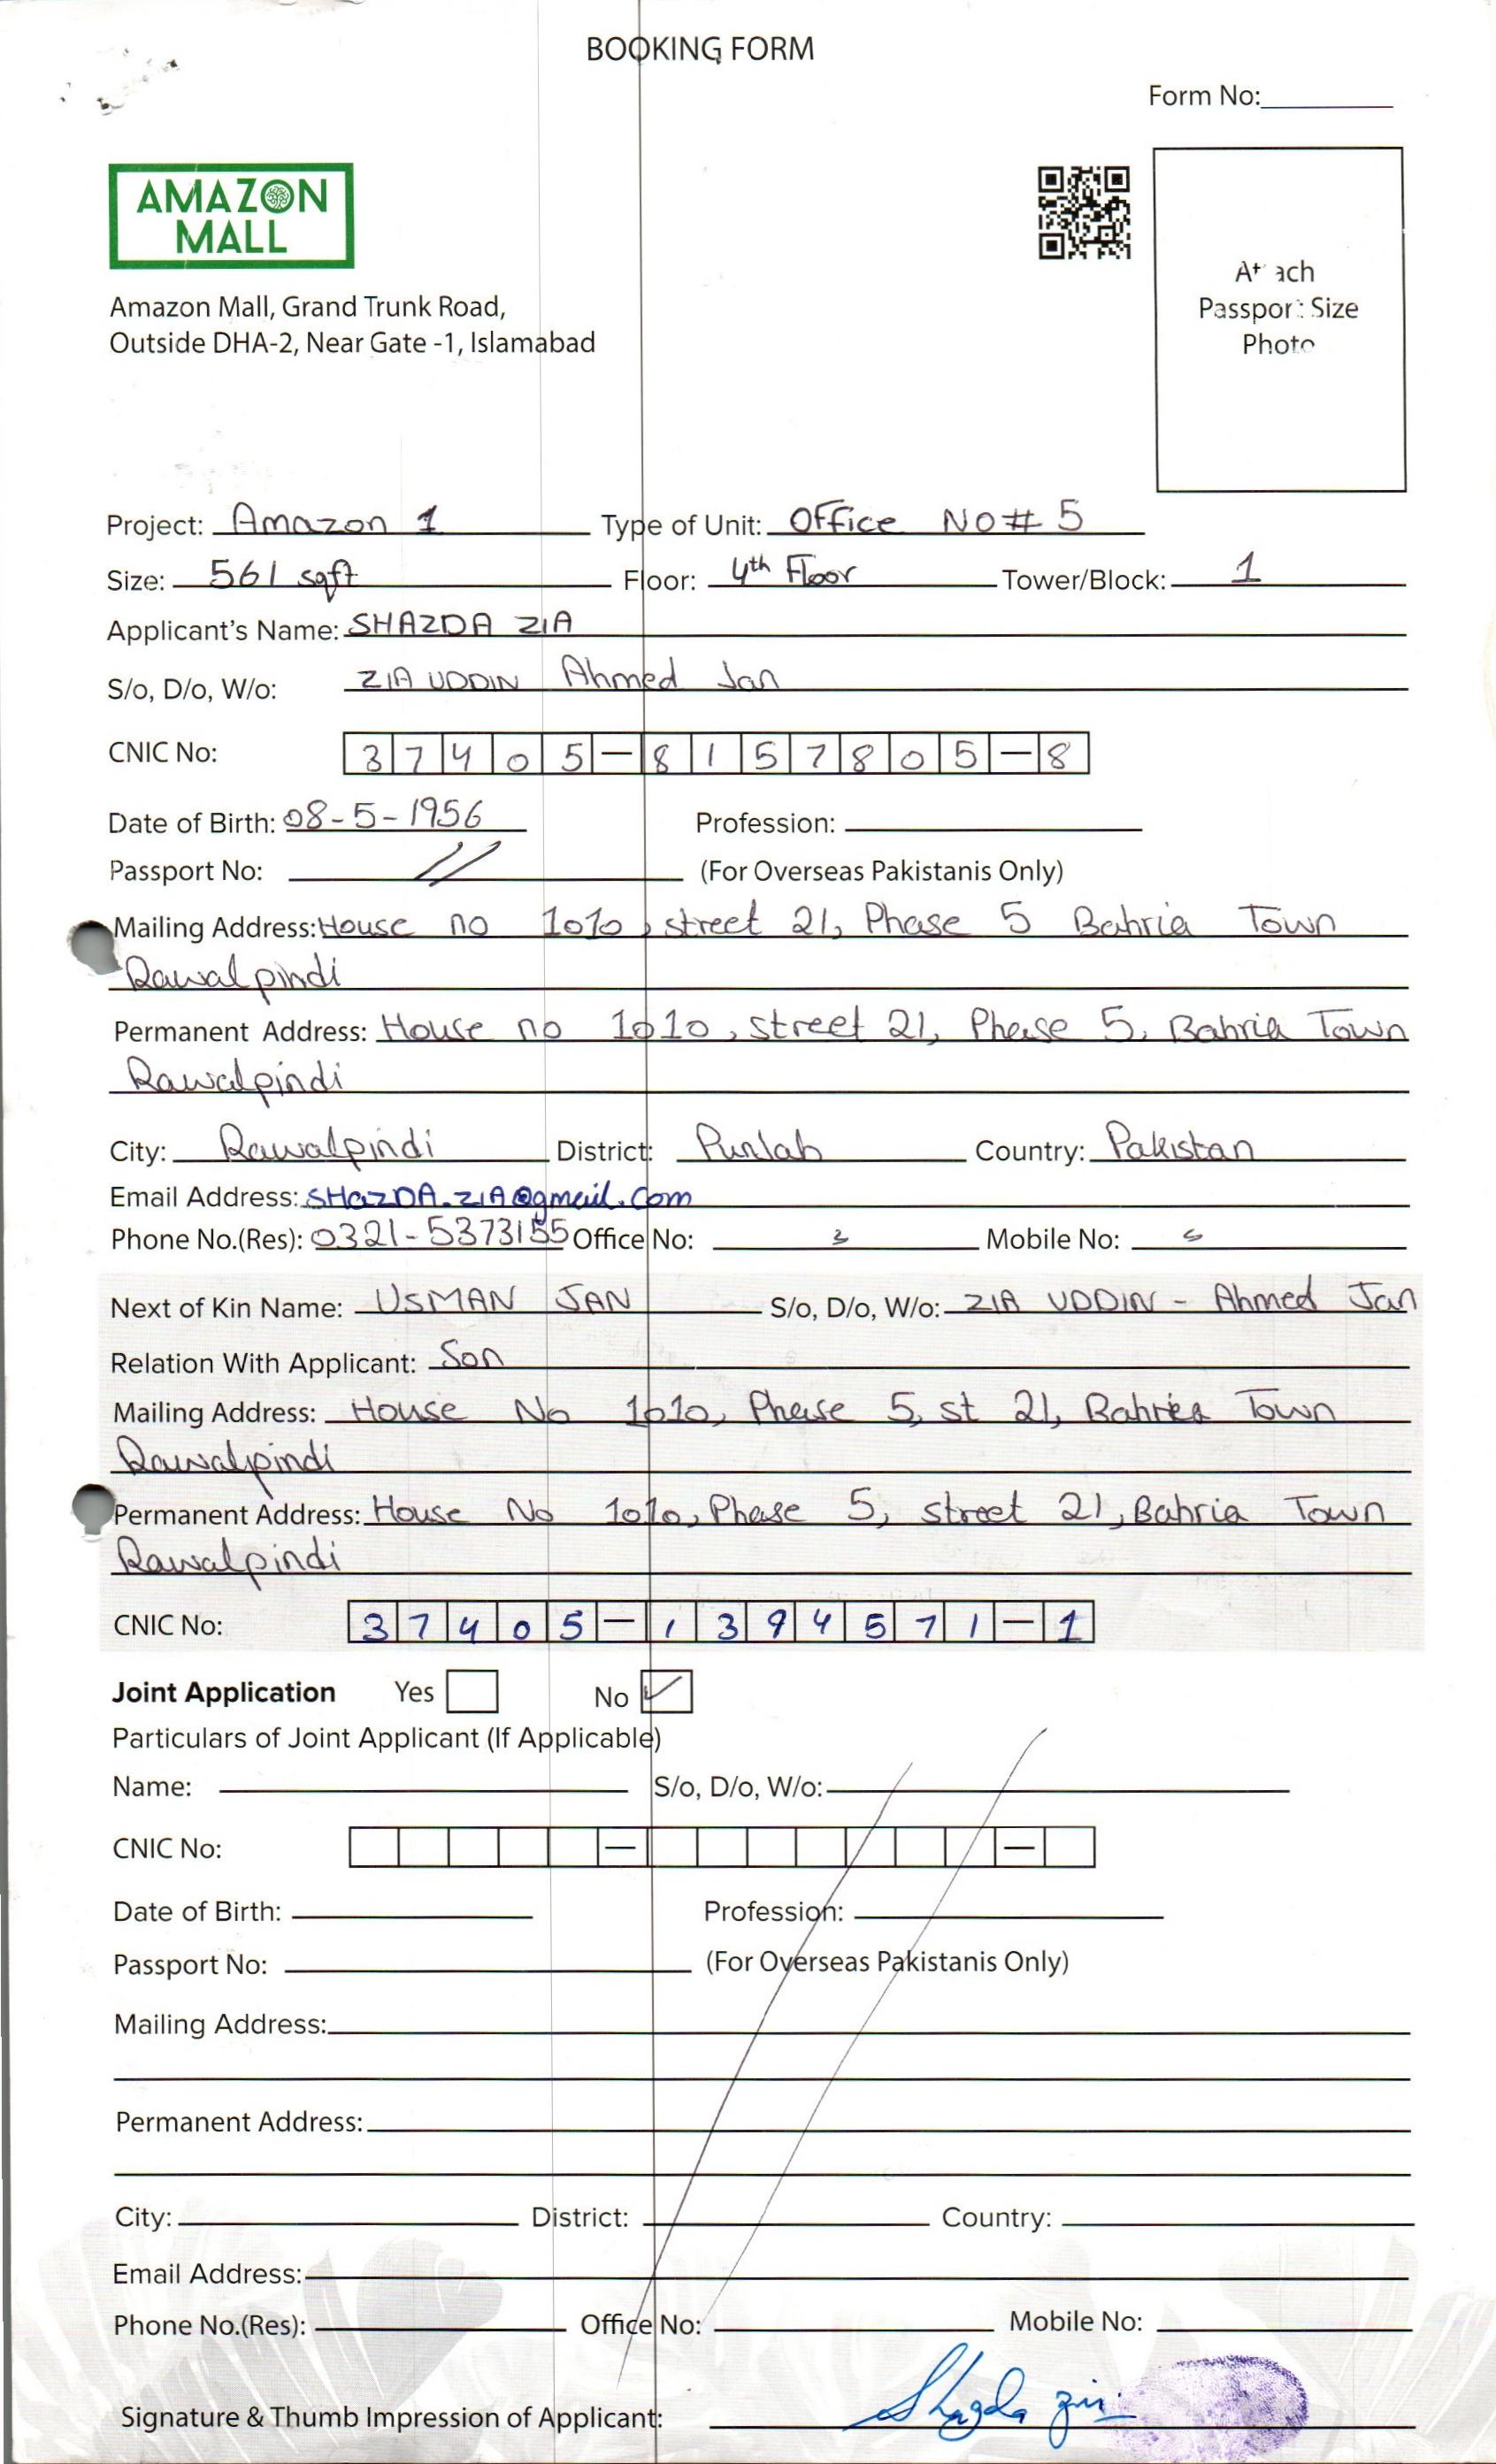 BOOKING FORM
Form No:
AMAZON
MALL
Attach
Passport Size
Photo
Amazon Mall, Grand Trunk Road,
Outside DHA-2, Near Gate -1, Islamabad
Project: Amazon 1 Type of Unit: Office NO# 5
Size: 561 sqft Floor: 4th Floor Tower/Block: 1
Applicant's Name: SHAZDA ZIA
S/o, D/o, W/o: ZIA UDDIN Ahmed Jan
CNIC No: 37405-8157805-8
Date of Birth: 08-5-1956 Profession:
Passport No: // (For Overseas Pakistanis Only)
Mailing Address: House no 1010, street 21, Phase 5 Bahria Town
Rawalpindi
Permanent Address: House no 1010, street 21, Phase 5, Bahria Town
Rawalpindi
City: Rawalpindi District: Punjab Country: Pakistan
Email Address: SHazDA.ZIA@gmail.com
Phone No.(Res): 0321-5373155 Office No: Mobile No:
Next of Kin Name: USMAN JAN S/o, D/o, W/o: ZIA UDDIN - Ahmed Jan
Relation With Applicant: Son
Mailing Address: House No 1010, Phase 5, st 21, Bahria Town
Rawalpindi
Permanent Address: House No 1010, Phase 5, street 21, Bahria Town
Rawalpindi
CNIC No: 37405-1394571-1
Joint Application Yes No ✓
Particulars of Joint Applicant (If Applicable)
Name: S/o, D/o, W/o:
CNIC No: — —
Date of Birth: Profession:
Passport No: (For Overseas Pakistanis Only)
Mailing Address:
Permanent Address:
City: District: Country:
Email Address:
Phone No.(Res): Office No: Mobile No:
Signature & Thumb Impression of Applicant: Shazda Zia